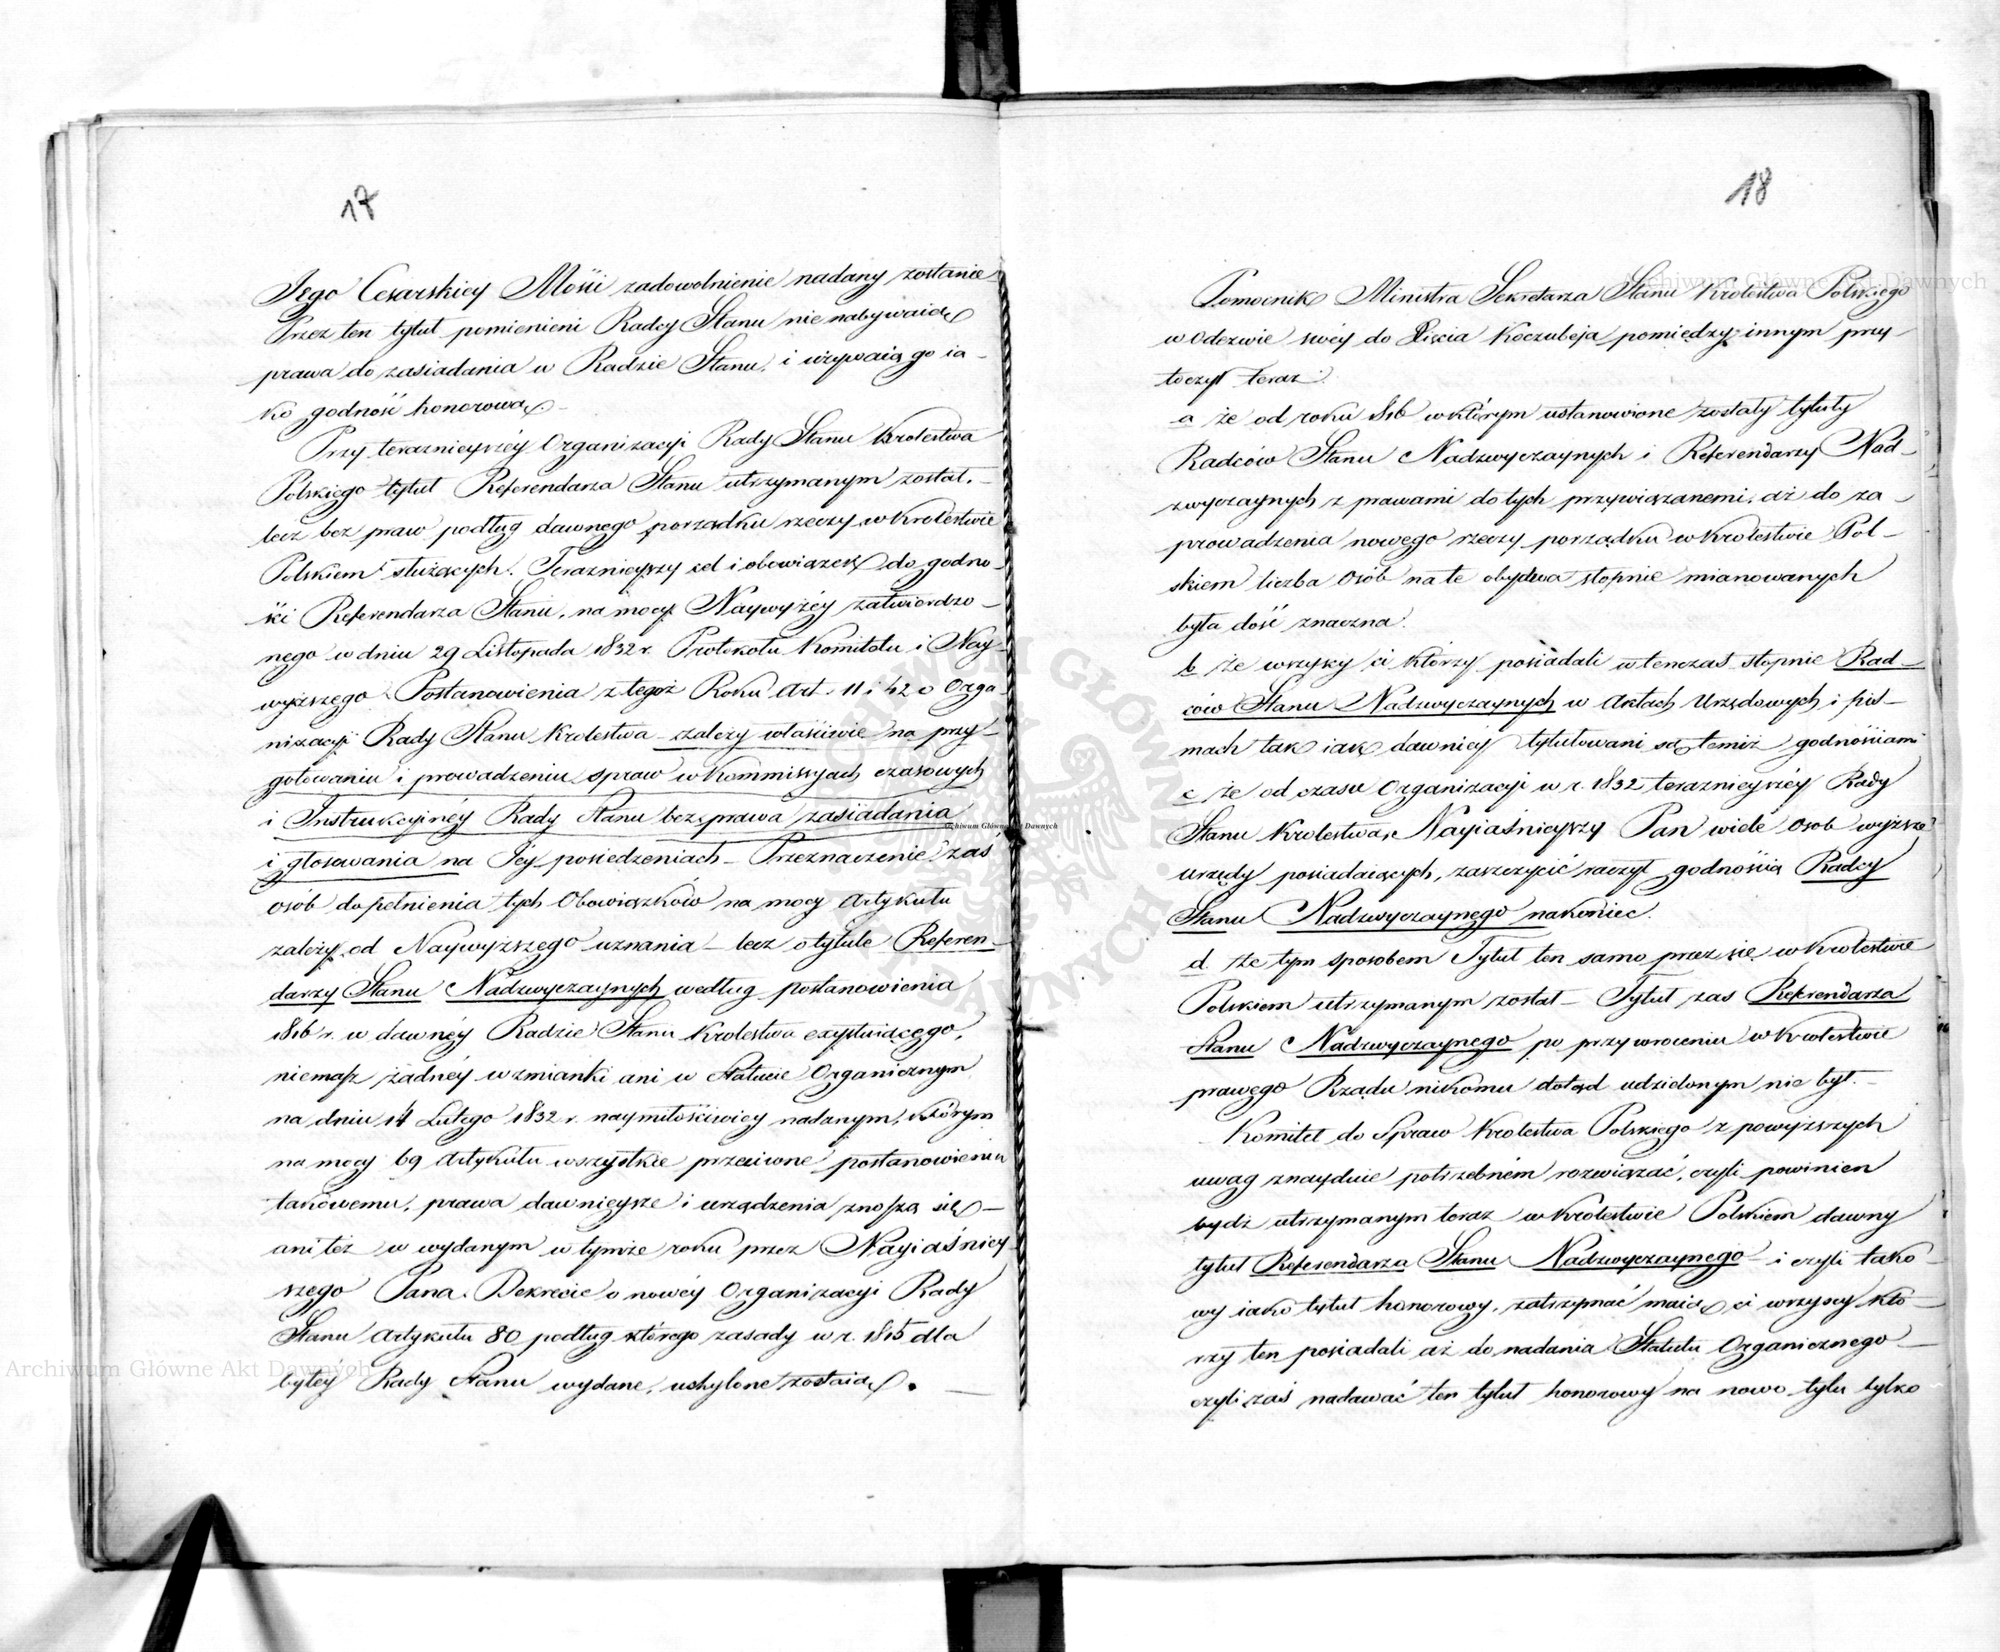 17
Jego Cesarskiey Mości zadowolnienie nadany zostanie
Przez ten tytuł pomienieni Radcy Stanu nie nabywaią
prawa do zasiadania w Radzie Stanu, i używaią go ia-
ko godność honorową. –
Przy teraznieyszéy Organizacyi Rady Stanu Krolestwa
Polskiego tytuł Referendarza Stanu utrzymanym został. –
lecz bez praw podług dawnego porządku rzeczy w Krolestwie
Polskiem służących. Teraznieyszy cel i obowiązek do godno-
ści Referendarza Stanu, na mocy Naywyżéy zatwierdzo-
nego w dniu 29 Listopada 1832 r. Protokołu Komitetu i Nay-
wyższego Postanowienia z tegoż Roku Art. 11 i 42 o Orga-
nizacyi Rady Stanu Krolestwa – zależy właściwie na przy-
gotowaniu i prowadzeniu spraw w Kommissyach czasowych
i Instrukcyinéy Rady Stanu bez prawa zasiadania
i głosowania na Jéy posiedzeniach – Przeznaczenie zaś
osób do pełnienia tych Obowiązków na mocy Artykułu
zależy od Naywyższego uznania – lecz o tytule Referen-
darzy Stanu Nadzwyczaynych według postanowienia
1816 r. w dawnéy Radzie Stanu Krolestwa exystuiącego,
niemasz żadnéy wzmianki ani w Statucie Organicznym
na dniu 14 Lutego 1832 r. naymiłościwiey nadanym, którym
na mocy 69 Artykułu wszystkie przeciwne postanowieniu
takowemu, prawa dawnieysze i urządzenia znoszą się –
ani też w wydanym w tymże roku przez Nayiaśniey-
szego Pana Dekrecie o nowéy Organizacyi Rady
Stanu Artykułu 80 podług którego zasady w r. 1815 dla
byłéy Rady Stanu wydane, uchylone zostaią. –
18
Pomocnik Ministra Sekretarza Stanu Krolestwa Polskiego
w Odezwie swéy do Xięcia Koczubeja pomiędzy innym przy-
toczył teraz:
a że od roku 1816 w którym ustanowione zostały tytuły
Radców Stanu Nadzwyczaynych i Referendarzy Nad-
zwyczaynych z prawami do tych przywiązanemi, aż do za-
prowadzenia nowego rzeczy porządku w Krolestwie Pol-
skiem liczba Osób na te obydwa stopnie mianowanych
była dość znaczna.
b że wszyscy ci którzy posiadali w tenczas stopnie Rad-
ców Stanu Nadzwyczaynych w Aktach Urzędowych i pis-
mach tak iak dawniey tytułowani są temiż godnościami
c że od czasu Organizacyi w r. 1832 teraznieyszéy Rady
Stanu Krolestwa, Nayiaśnieyszy Pan wiele Osob wyższe
urzędy posiadaiących, zaszczycić raczył godnością Radcy
Stanu Nadzwyczaynego nakoniec.
d. że tym sposobem Tytuł ten samo przez się w Krolestwie
Polskiem utrzymanym został – Tytuł zas Referendarza
Stanu Nadzwyczaynego po przywroceniu w Krolestwie
prawego Rządu nikomu dotąd udzielonym nie był. –
Komitet do Spraw Krolestwa Polskiego z powyższych
uwag znayduie potrzebném rozwiązać, czyli powinien
bydź utrzymanym teraz w Krolestwie Polskiem dawny
tytuł Referendarza Stanu Nadzwyczaynego – i czyli tako-
wy iako tytuł honorowy, zatrzymać maią ci wszyscy któ-
rzy ten posiadali aż do nadania Statutu Organicznego –
czyli zaś nadawać ten tytuł honorowy na nowo tylu tylko
Archiwum Główne Akt Dawnych
Archiwum Główne Akt Dawnych
Archiwum Główne Akt Dawnych